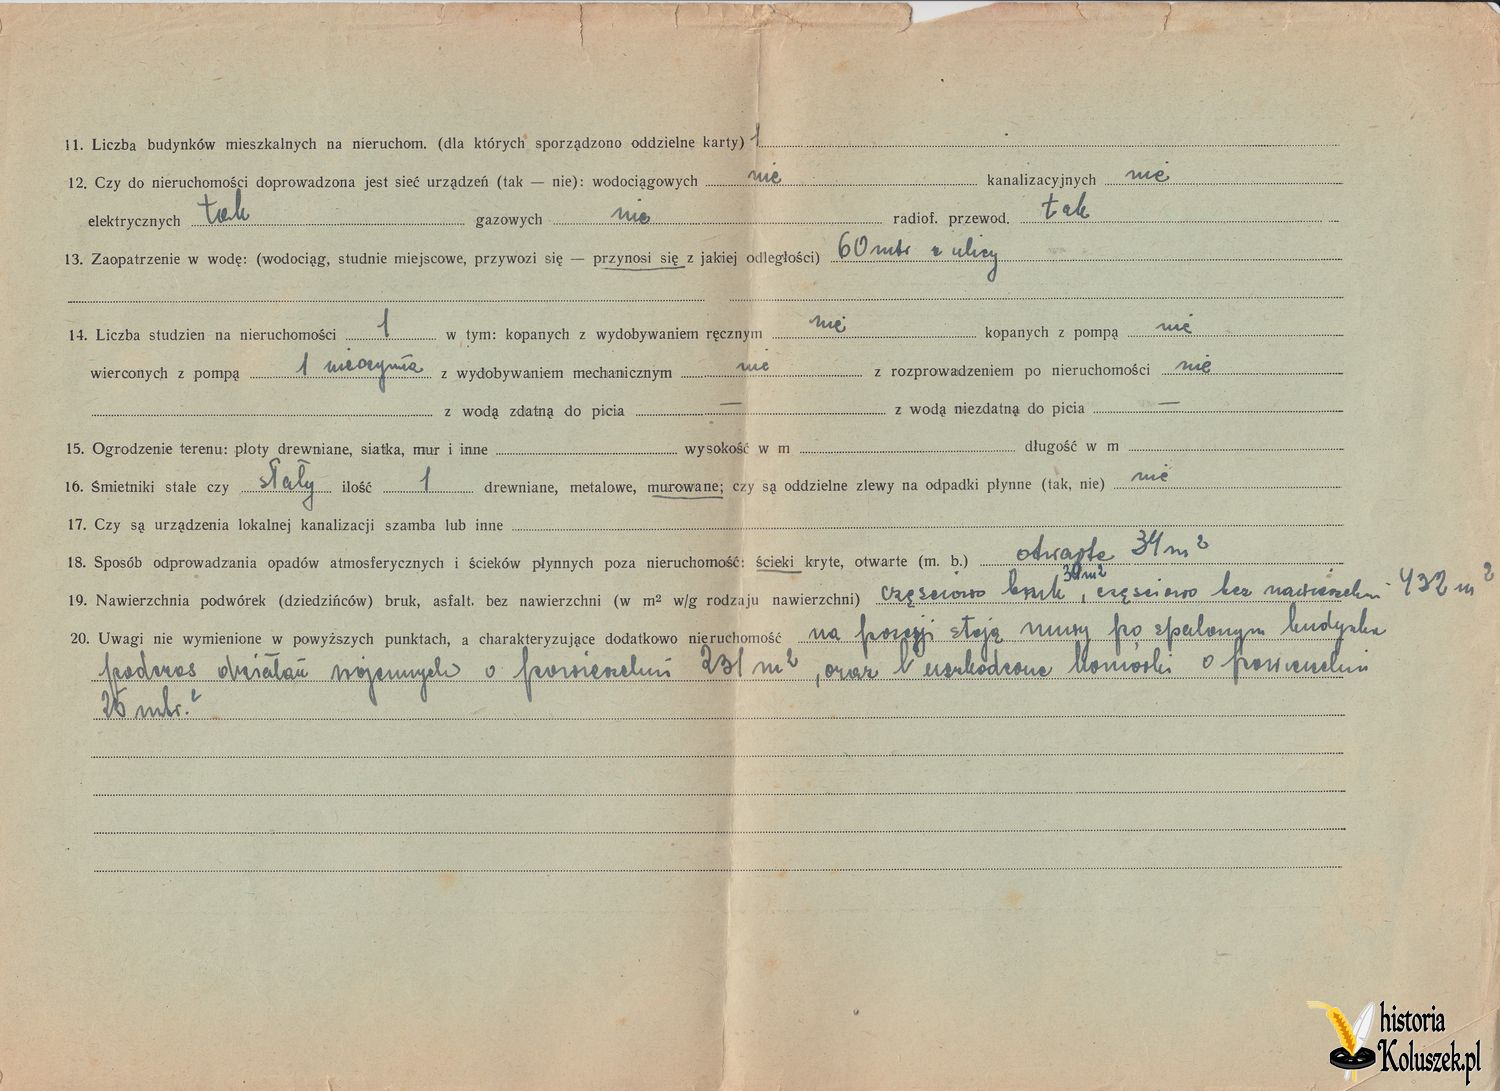 11. Liczba budynków mieszkalnych na nieruchom. (dla których sporządzono oddzielne karty) 1
12. Czy do nieruchomości doprowadzona jest sieć urządzeń (tak — nie): wodociągowych nie kanalizacyjnych nie
elektrycznych tak gazowych nie radiof. przewod. tak
13. Zaopatrzenie w wodę: (wodociąg, studnie miejscowe, przywozi się — przynosi się z jakiej odległości) 60 mtr z ulicy
14. Liczba studzien na nieruchomości 1 w tym: kopanych z wydobywaniem ręcznym nie kopanych z pompą nie
wierconych z pompą 1 nieczynna z wydobywaniem mechanicznym nie z rozprowadzeniem po nieruchomości nie
z wodą zdatną do picia — z wodą niezdatną do picia —
15. Ogrodzenie terenu: płoty drewniane, siatka, mur i inne wysokość w m długość w m
16. Śmietniki stałe czy stały ilość 1 drewniane, metalowe, murowane; czy są oddzielne zlewy na odpadki płynne (tak, nie) nie
17. Czy są urządzenia lokalnej kanalizacji szamba lub inne
18. Sposób odprowadzania opadów atmosferycznych i ścieków płynnych poza nieruchomość: ścieki kryte, otwarte (m. b.) otwarte 34 m²
19. Nawierzchnia podwórek (dziedzińców) bruk, asfalt. bez nawierzchni (w m² w/g rodzaju nawierzchni) częściowo bruk, częściowo bez nawierzchni 432 m²
20. Uwagi nie wymienione w powyższych punktach, a charakteryzujące dodatkowo nieruchomość na posesji stoją mury po spalonym budynku
podczas działań wojennych o powierzchni 231 m², oraz uszkodzone komórki o powierzchni
25 mtr.²
historia
Koluszek.pl